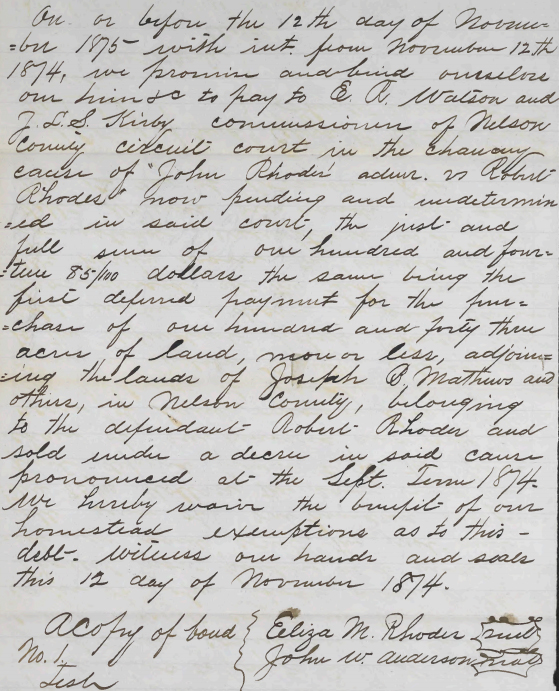 On or before the 12th day of Novem=
=ber 1875 with int. from November 12th
1874, we promise and bind ourselves
our heirs &c to pay to E. R. Watson and
T. L. S. Kirby commissioners of Nelson
County circuit court in the chancery
cause of "John Rhodes' admr. vs Robert
Rhodes" now pending and undetermin
=ed in said court, the just and
full sum of one hundred and four-
=teen 85/100 dollars the same being the
first deferred payment for the pur=
=chase of one hundred and forty three
acres of land, more or less, adjoin=
=ing the lands of Joseph B. Mathews and
others, in Nelson County, belonging
to the defendant Robert Rhodes and
sold under a decree in said cause
pronounced at the Sept. Term 1874.
We hereby waive the benefit of our
homestead exemptions as to this
debt. Witness our hands and seals
this 12 day of November 1874.
A copy of bond { Eliza M. Rhodes {seal}
No. 1. John W. Anderson {seal}
Teste